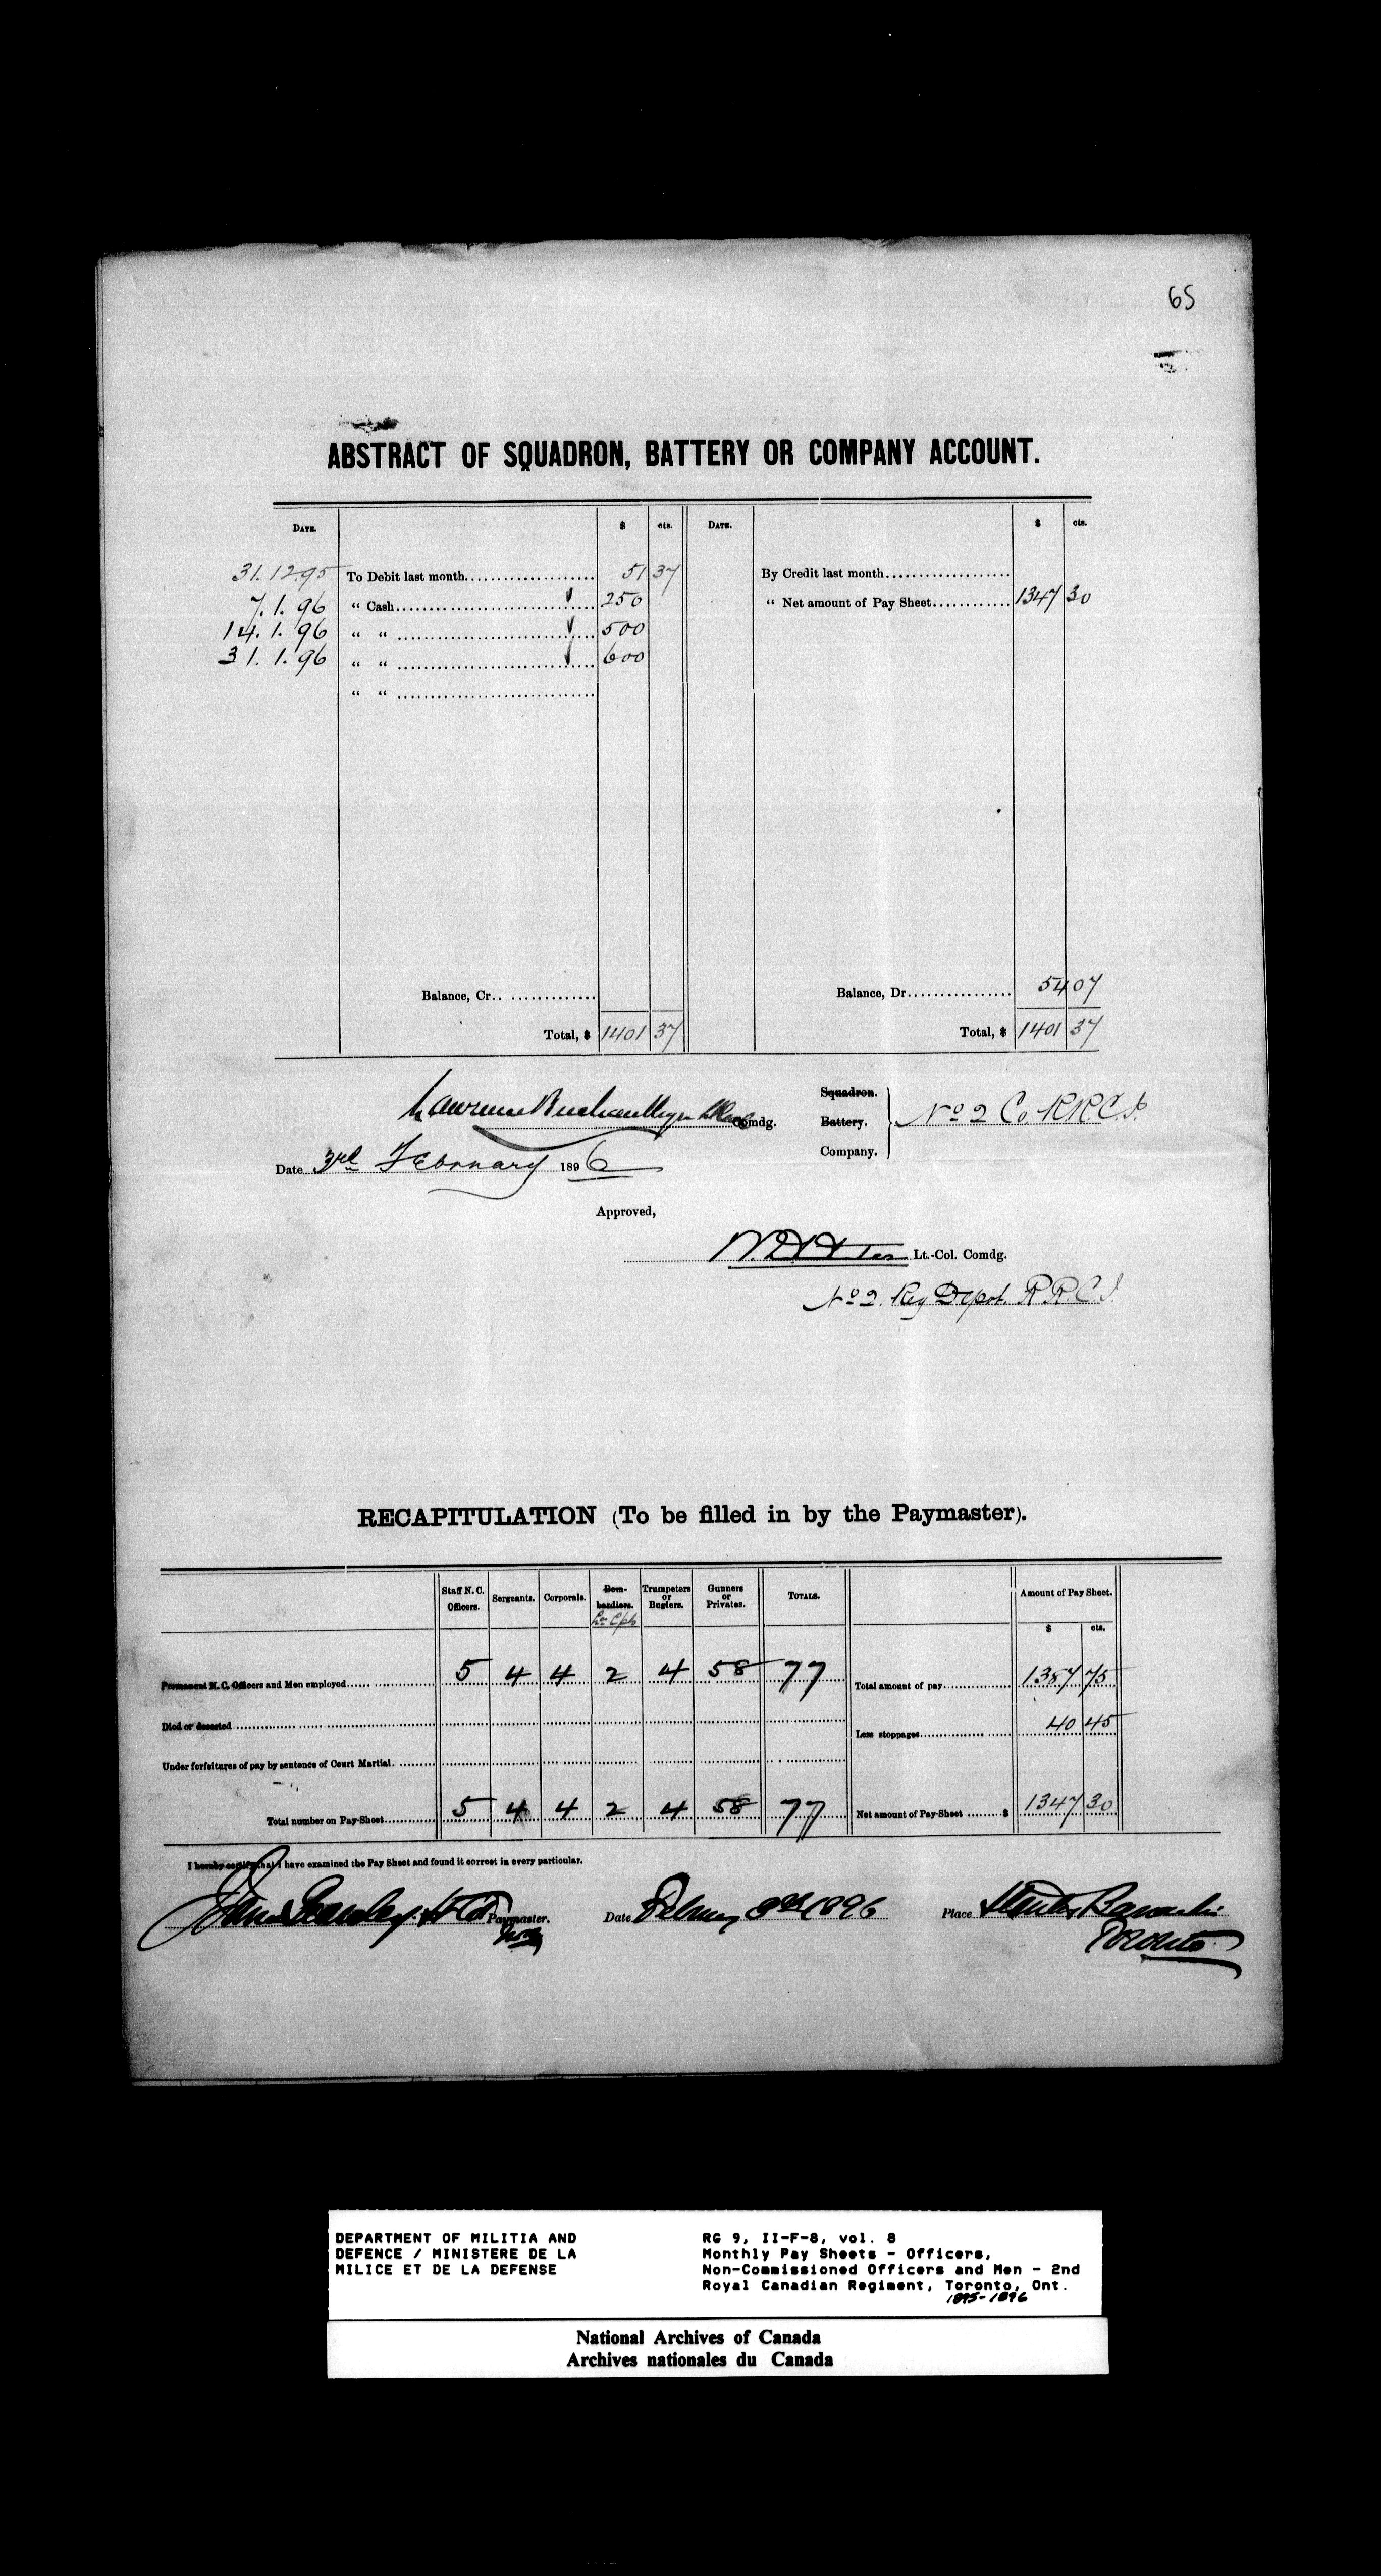 65
ABSTRACT OF SQUADRON, BATTERY OR COMPANY ACCOUNT.
DATE. $ cts. DATE. $ cts.
31.12.95 To Debit last month 51 37 By Credit last month
7.1.96 “ Cash 250 “ Net amount of Pay Sheet 1347 30
14.1.96 “ “ 500
31.1.96 “ “ 600
“ “
Balance, Cr. Balance, Dr. 54 07
Total, $ 1401 37 Total, $ 1401 37
Squadron.
Lawrence Buchan Major Comdg. Battery. No 2 Co. R.R.C.I.
Company.
Date 3rd February 1896
Approved,
W D Otter Lt.-Col. Comdg.
No 2. Reg Depot. R.R.C.I.
RECAPITULATION (To be filled in by the Paymaster).
Staff N. C. Officers. Sergeants. Corporals. Bombardiers. Lce Cpls Trumpeters or Buglers. Gunners or Privates. TOTALS. Amount of Pay Sheet.
$ cts.
Permanent N. C. Officers and Men employed 5 4 4 2 4 58 77 Total amount of pay 1387 75
Died or deserted Less stoppages 40 45
Under forfeitures of pay by sentence of Court Martial.
Total number on Pay-Sheet 5 4 4 2 4 58 77 Net amount of Pay-Sheet $ 1347 30
I hereby certify that I have examined the Pay Sheet and found it correct in every particular.
Paymaster. Date 3rd 1896 Place Stanley Barracks
Toronto
DEPARTMENT OF MILITIA AND
DEFENCE / MINISTERE DE LA
MILICE ET DE LA DEFENSE
RG 9, II-F-8, vol. 8
Monthly Pay Sheets - Officers,
Non-Commissioned Officers and Men - 2nd
Royal Canadian Regiment, Toronto, Ont.
1895-1896
National Archives of Canada
Archives nationales du Canada